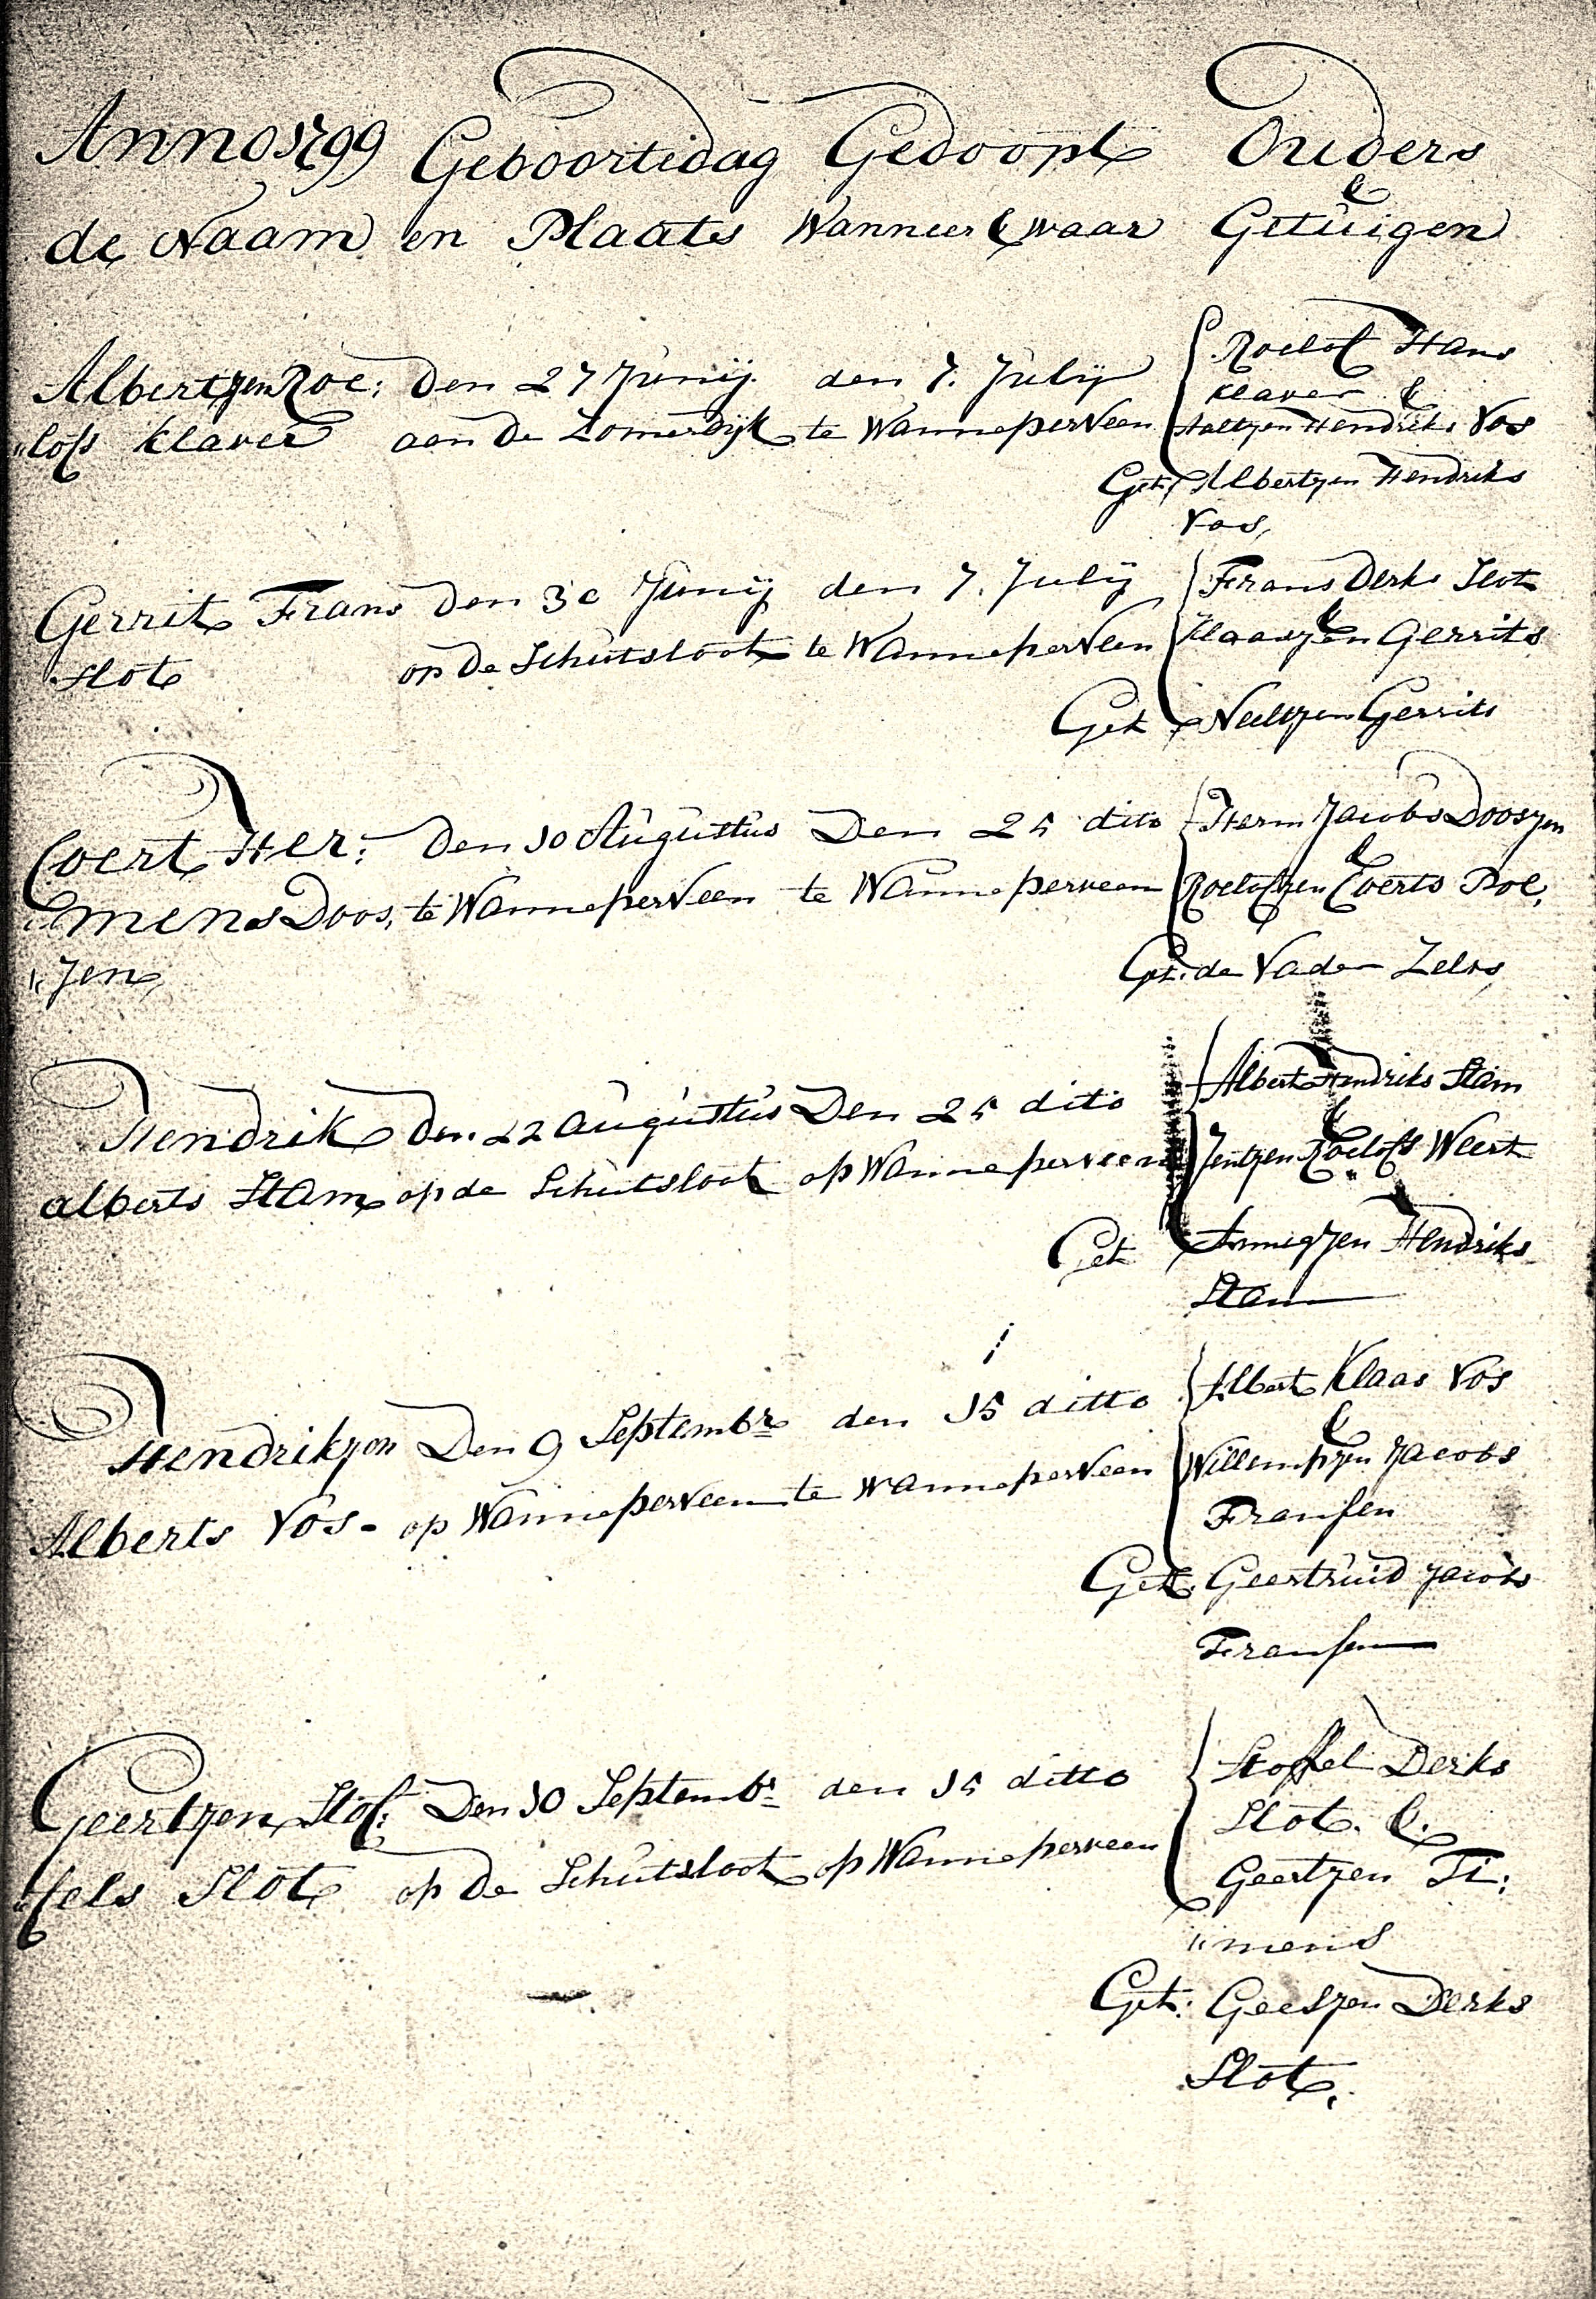 Anno 1799 Geboortedag Gedoopt Ouders
&
de Naam en Plaats Wanneer & waar Getuigen
Albertjen Roe: Den 27 Junij den 7. Julij Roelof Hans
Klaver &
"lofs Klaver aan de Zomerdijk te Wanneperveen Aaltjen Hendriks Vos
Get: Albertjen Hendriks
Vos,
Gerrit Frans Den 30 Junij den 7. Julij Frans Derks Slot
&
Slot op de Schutsloot te Wanneperveen Klaasjen Gerrits
Get Neeltjen Gerrits
Evert Her: Den 10 Augustus Den 25 dito Herm Jacobs Doosjen
&
"mens Doos, te Wanneperveen te Wanneperveen Roelofjen Everts Roe,
"jen,
Get: de Vader Zelvs
Hendrik Den 22 Augustus Den 25 dito Albert Hendriks Stam
&
alberts Stam op de Schutsloot op Wanneperveen Jentjen Roelofs Weert
Get Annigjen Hendriks
Stam
Hendrikjen Den 9 Septembr den 15 ditto Albert Klaas Vos
&
Alberts Vos - op Wanneperveen te Wanneperveen Willempjen Jacobs
Fransen
Get: Geertruid Jacobs
Fransen
Geertjen Stof: Den 10 Septembr den 15 ditto Stoffel Derks
Slot. &.
"fels Slot op de Schutsloot op Wanneperveen Geertjen Ti:
"mens
Get: Geesjen Derks
Slot.